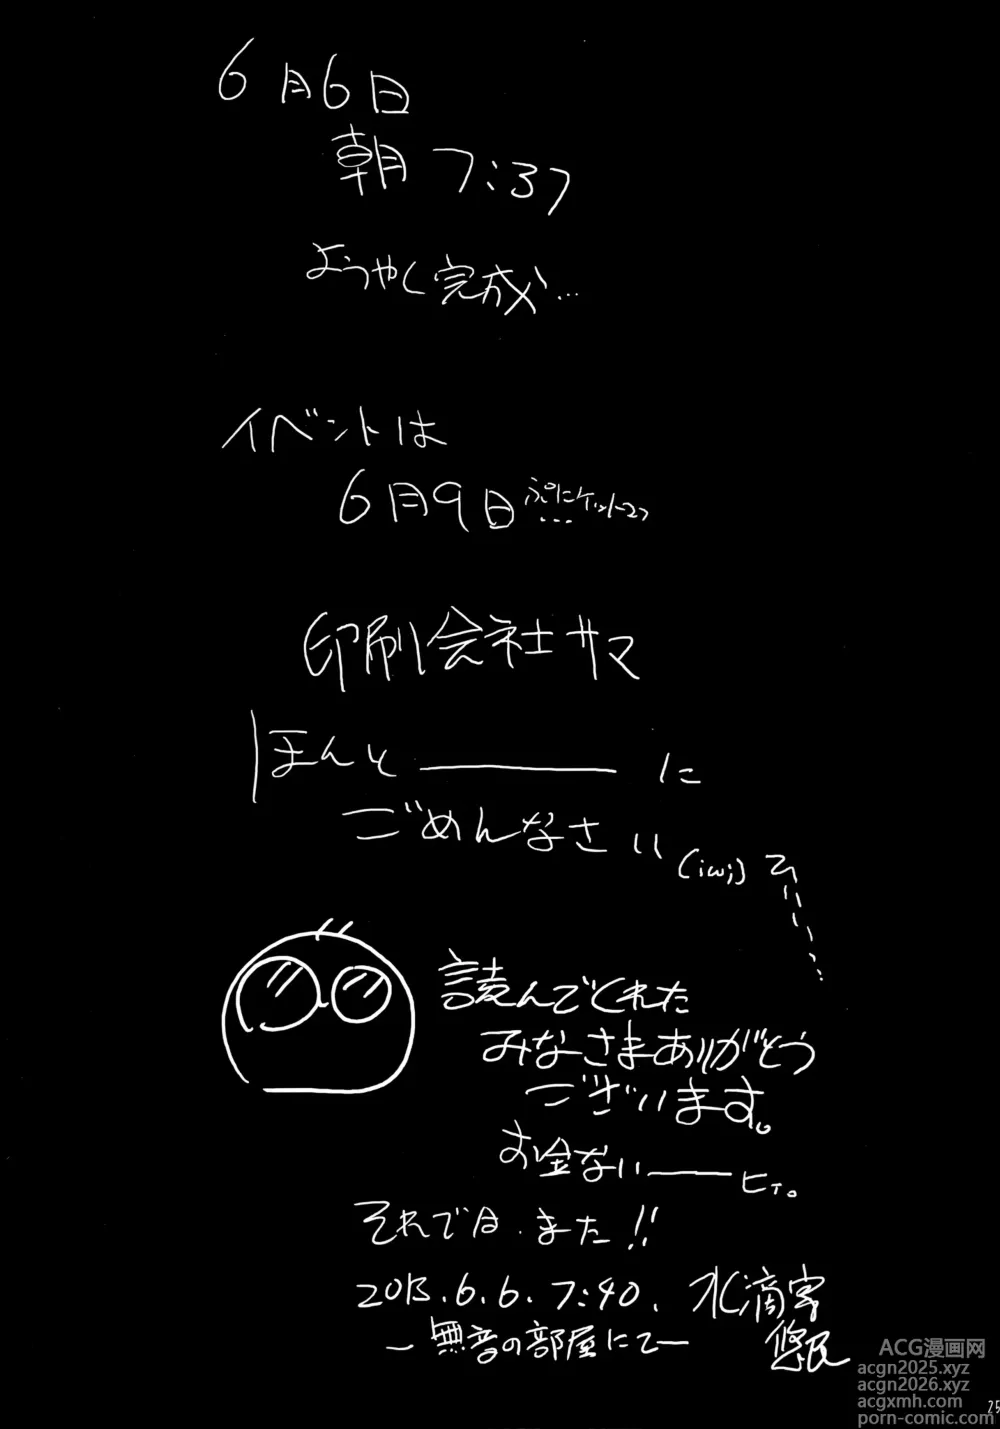 6月6日
朝 7:37
ようやく完成…
イベントは
6月9日 ぷにケット27
…
印刷会社サマ
ほんと――――に
ごめんなさい (;ω;)
読んでくれた
みなさまありがとう
ございます。
お金ない――ヒィ。
それでは、また!!
2013.6.6. 7:40. 水滴字
―無音の部屋にて― 悠民
ACG漫画网
acgn2025.xyz
acgn2026.xyz
acgxmh.com
porn-comic.com
25